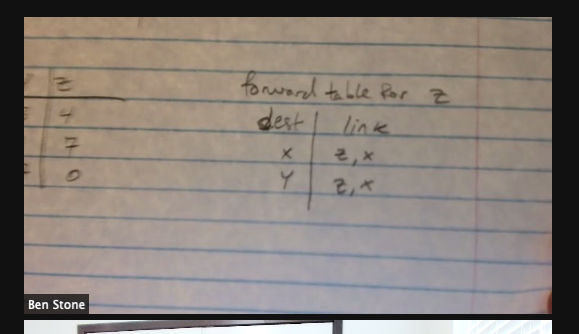 z
4
7
0
forward table for z
dest link
x z,x
y z,x
Ben Stone